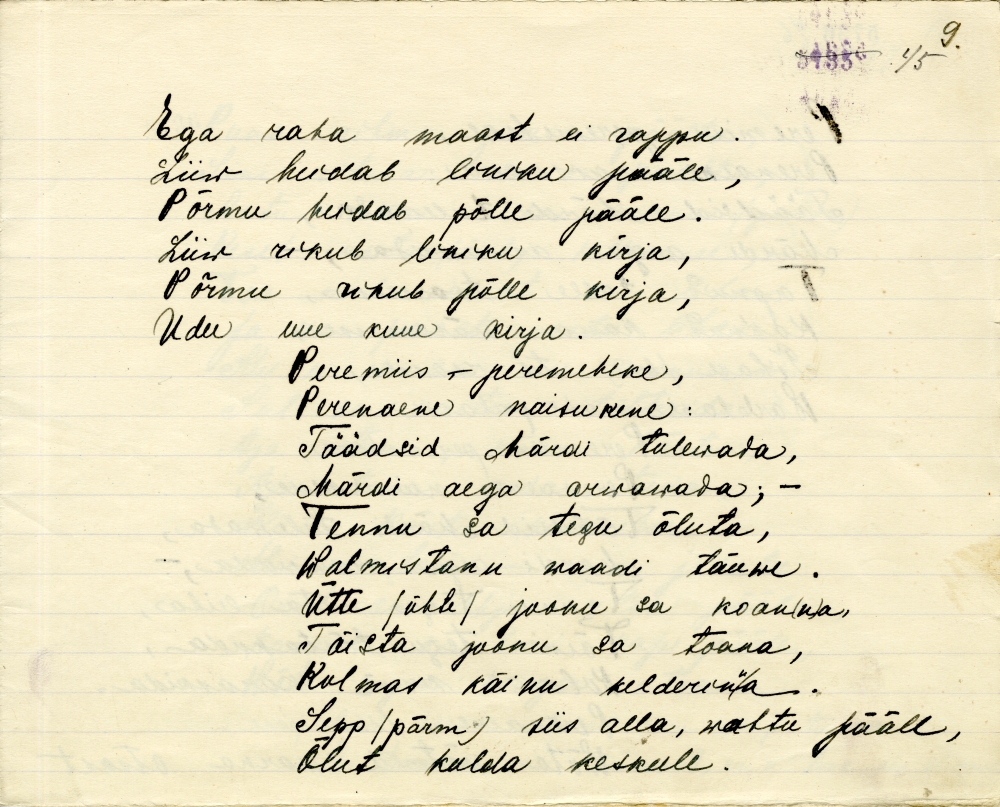 9.
1/5
Ega raha maast ei rappu.
Liiw heidab liniku pääle,
Põrmu heidab põlle pääle.
Liiw rikub liniku kirja,
Põrmu rikub põlle kirja,
Udu uue kuue kirja.
Peremiis - peremeheke,
Perenaene naisukene:
Täädsid Märdi tulewada,
Märdi aega arwawada; -
Tennu sa tegu õluta,
Walmistanu waadi täuwe.
Ütte /ühte/ joonu sa koan(n)a,
Tõista joonu sa toana,
Kolmas käinu kelderinna.
Sepp /pärm) siis alla, wahtu pääle,
Õlut kulda keskele.